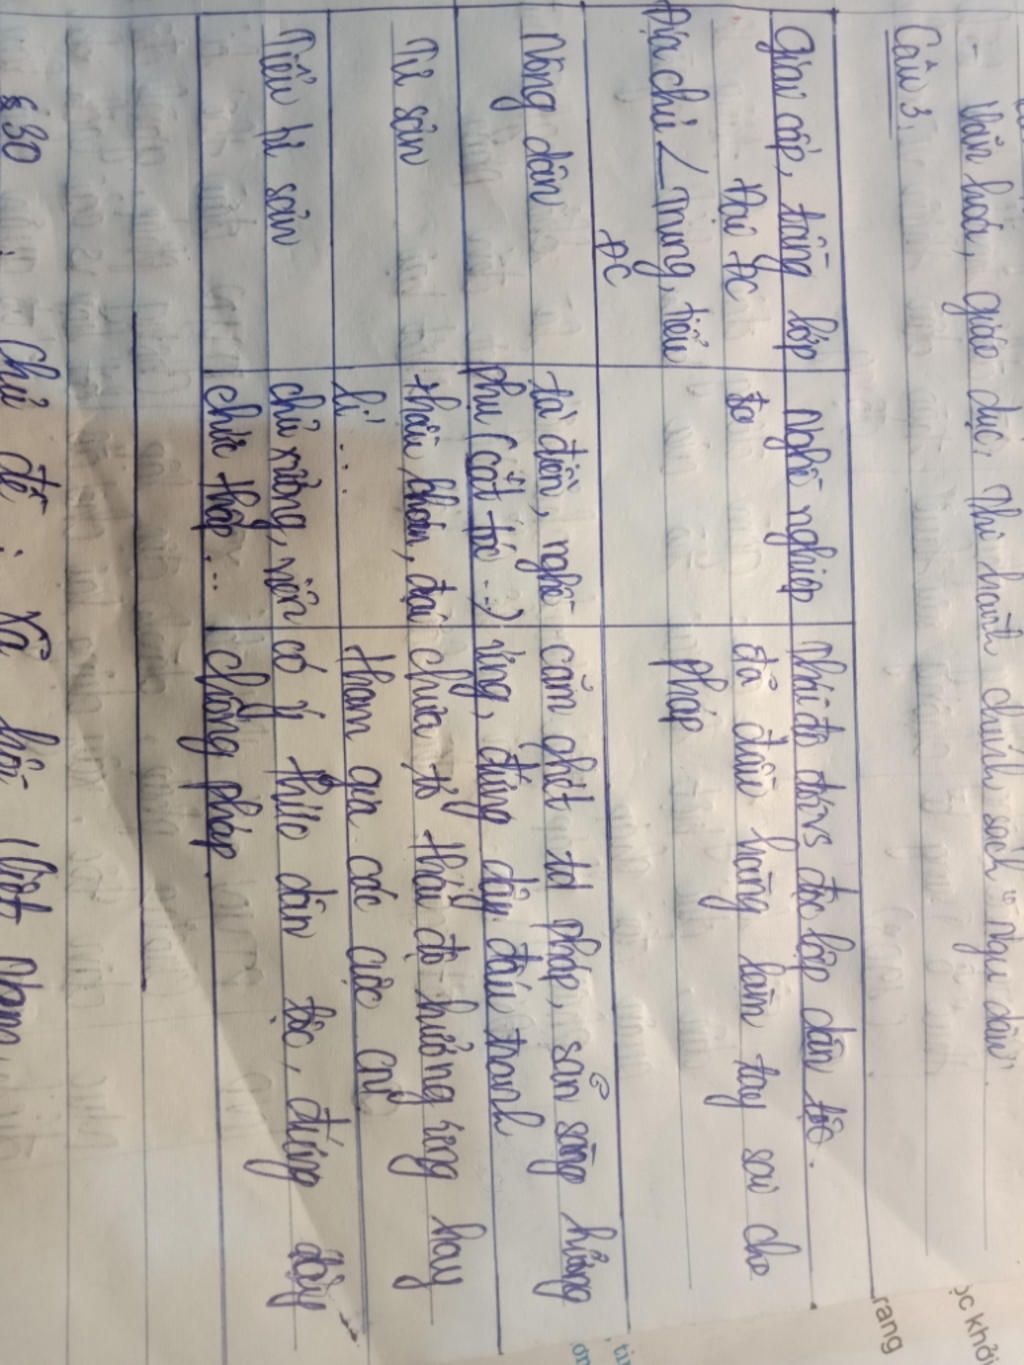 - Văn hoá, giáo dục: Thi hành chính sách "ngu dân".
Câu 3:
Giai cấp, tầng lớp | Nghề nghiệp | Thái độ đ/vs độc lập dân tộc.
Đại ĐC
Địa chủ < Trung, tiểu ĐC
đã đầu hàng làm tay sai cho Pháp
Nông dân | tá điền, nghề phụ (cắt tóc...) | căm ghét td Pháp, sẵn sàng hưởng ứng, đứng dậy đấu tranh
Tư sản | thầu khoán, đại lí... | chưa tỏ thái độ hưởng ứng hay tham gia các cuộc CM
Tiểu tư sản | chủ xưởng, viên chức thấp... | có ý thức dân tộc, đứng dậy chống Pháp
§30: Chủ đề: Xã hội Việt Nam
ọc khởi
rang